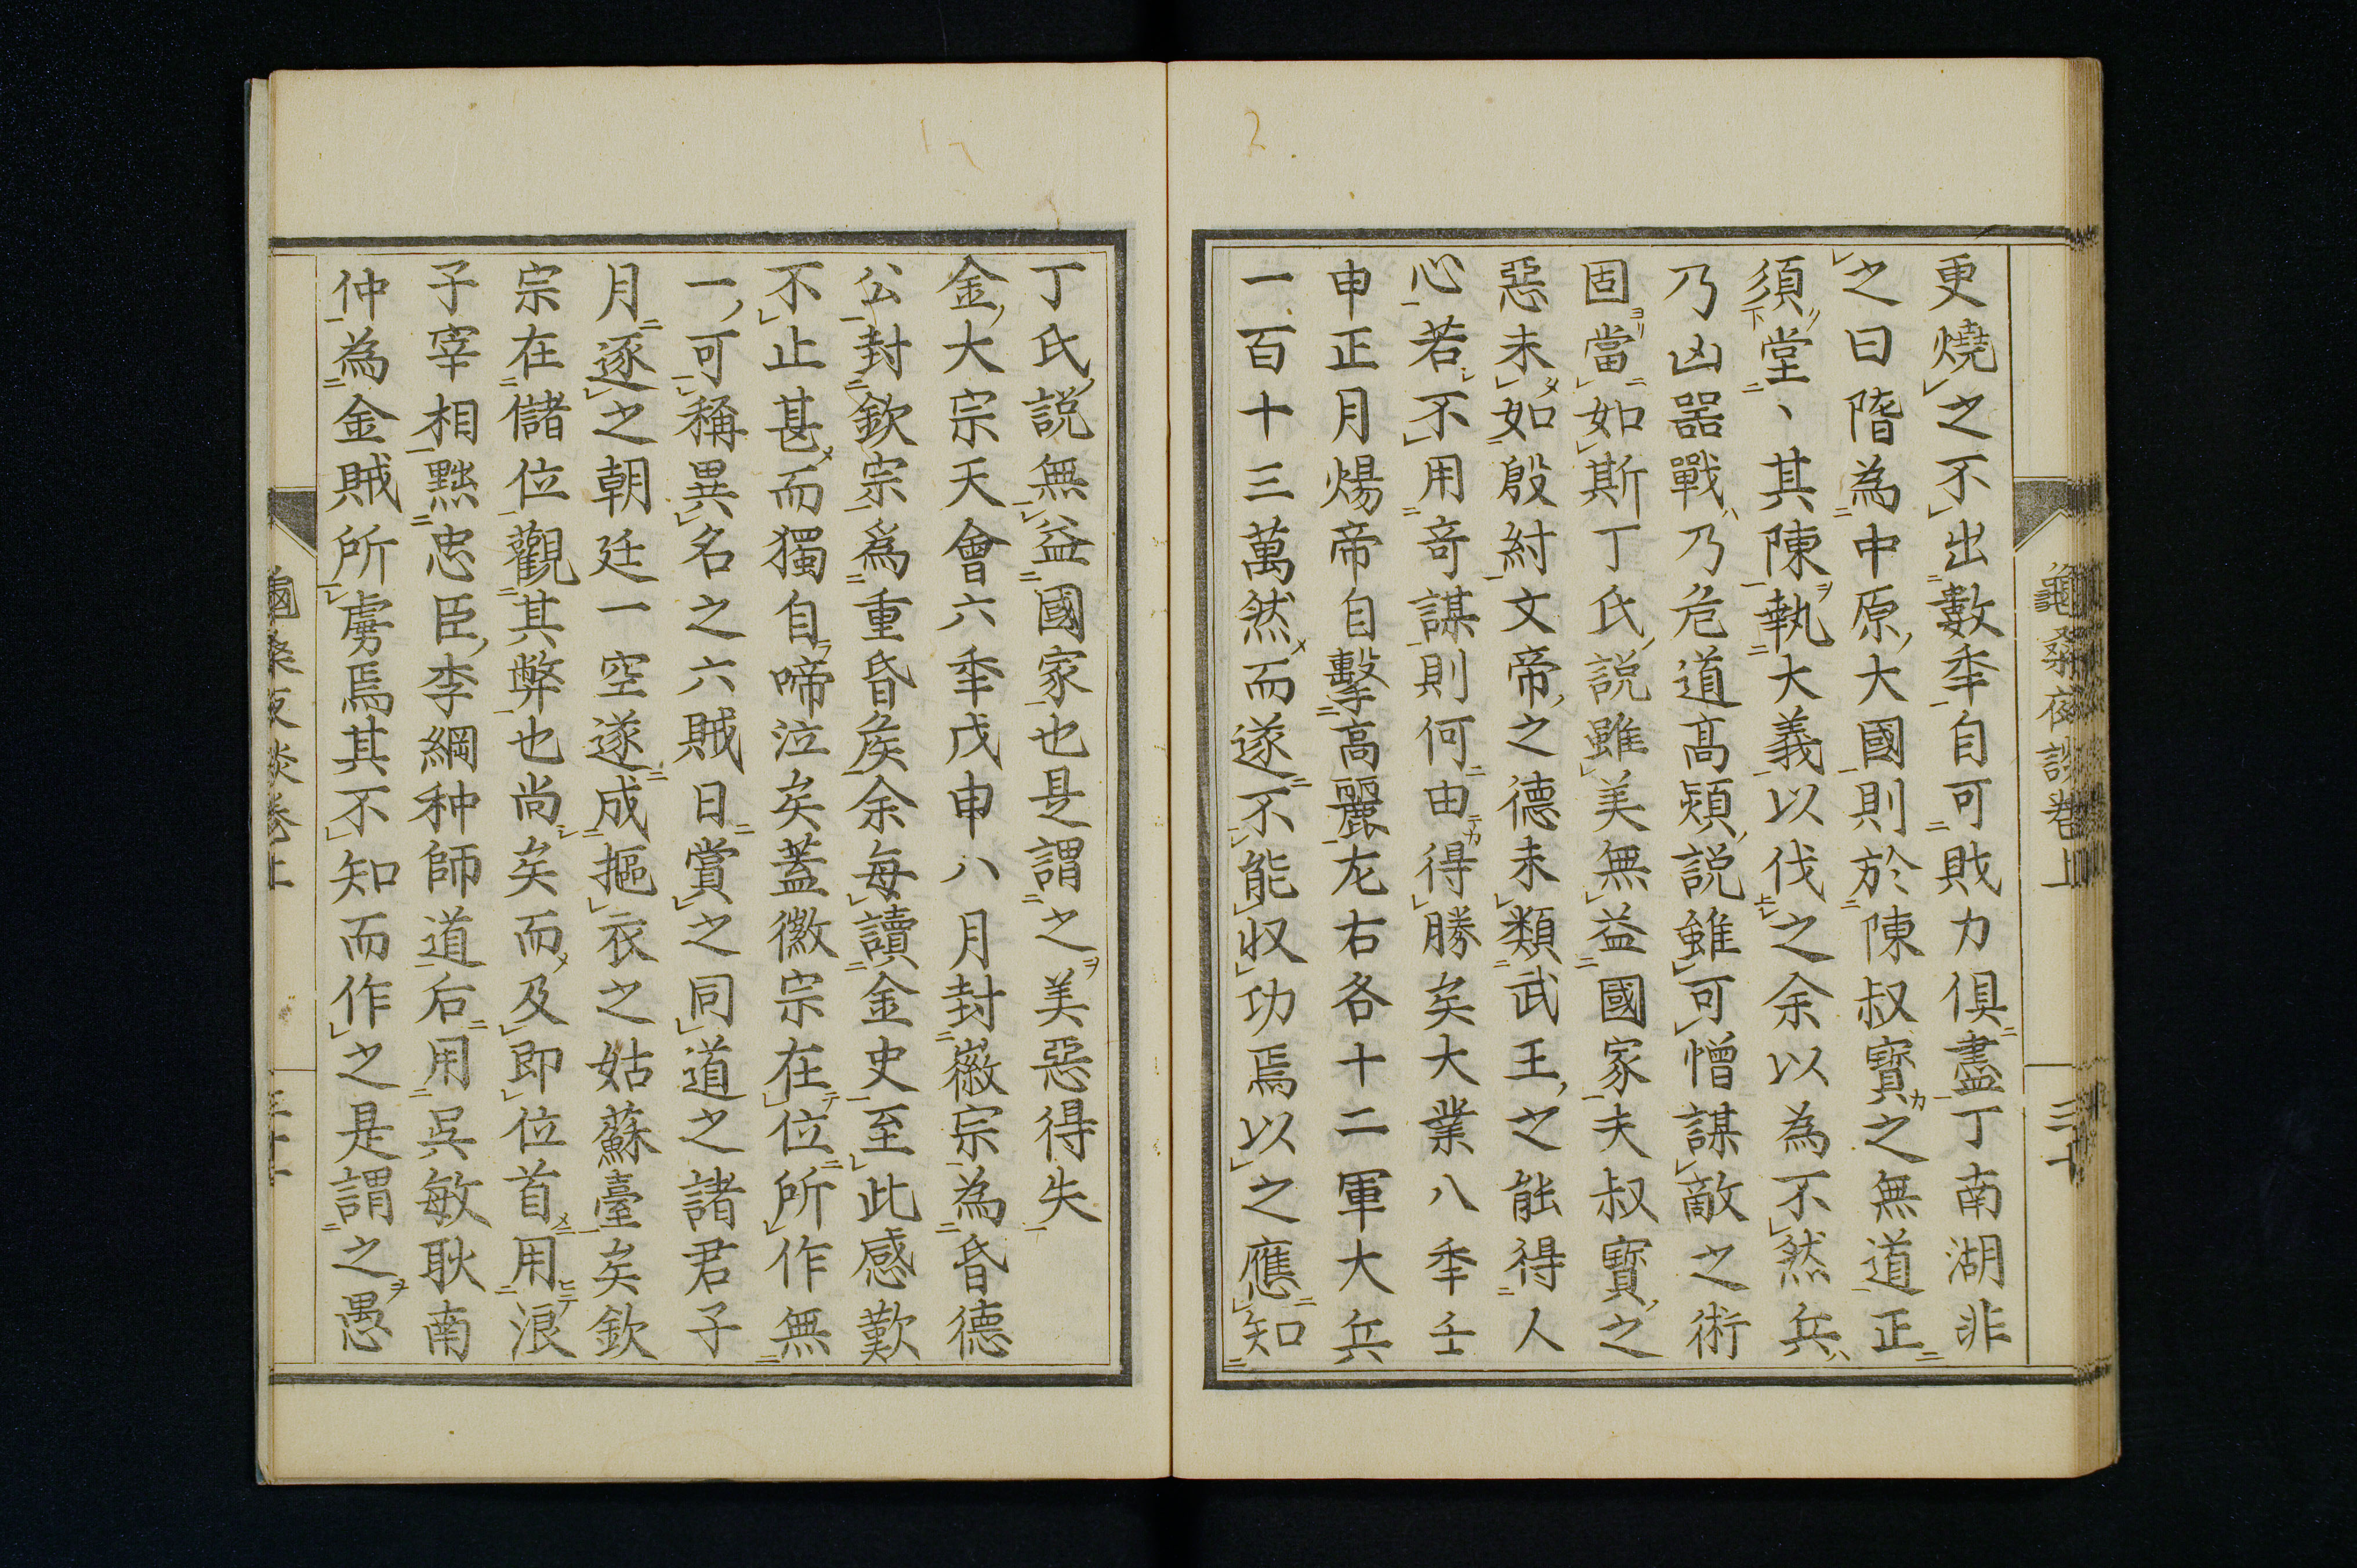 龜桑夜談卷上 三十
更燒之不出數年自可財力俱盡丁南湖非
之曰隋為中原大國則於陳叔寶之無道正
須堂〻其陳執大義以伐之余以為不然兵
乃凶器戰乃危道高熲説雖可憎謀敵之術
固當如斯丁氏説雖美無益國家夫叔寶之
惡未如殷紂文帝之德未類武王之能得人
心若不用竒謀則何由得勝矣大業八年壬
申正月煬帝自擊高麗左右各十二軍大兵
一百十三萬然而遂不能収功焉以之應知
丁氏説無益國家也是謂之美惡得失
金大宗天會六年戊申八月封徽宗為昏德
公封欽宗爲重昏矦余每讀金史至此感歎
不止甚而獨自啼泣矣蓋徽宗在位所作無
一可稱異名之六賊日賞之同道之諸君子
月逐之朝廷一空遂成摳衣之姑蘇臺矣欽
宗在儲位觀其弊也尚矣而及即位首用浪
子宰相黙忠臣李綱种師道后用吳敏耿南
仲為金賊所虜焉其不知而作之是謂之愚
龜桑夜談卷上